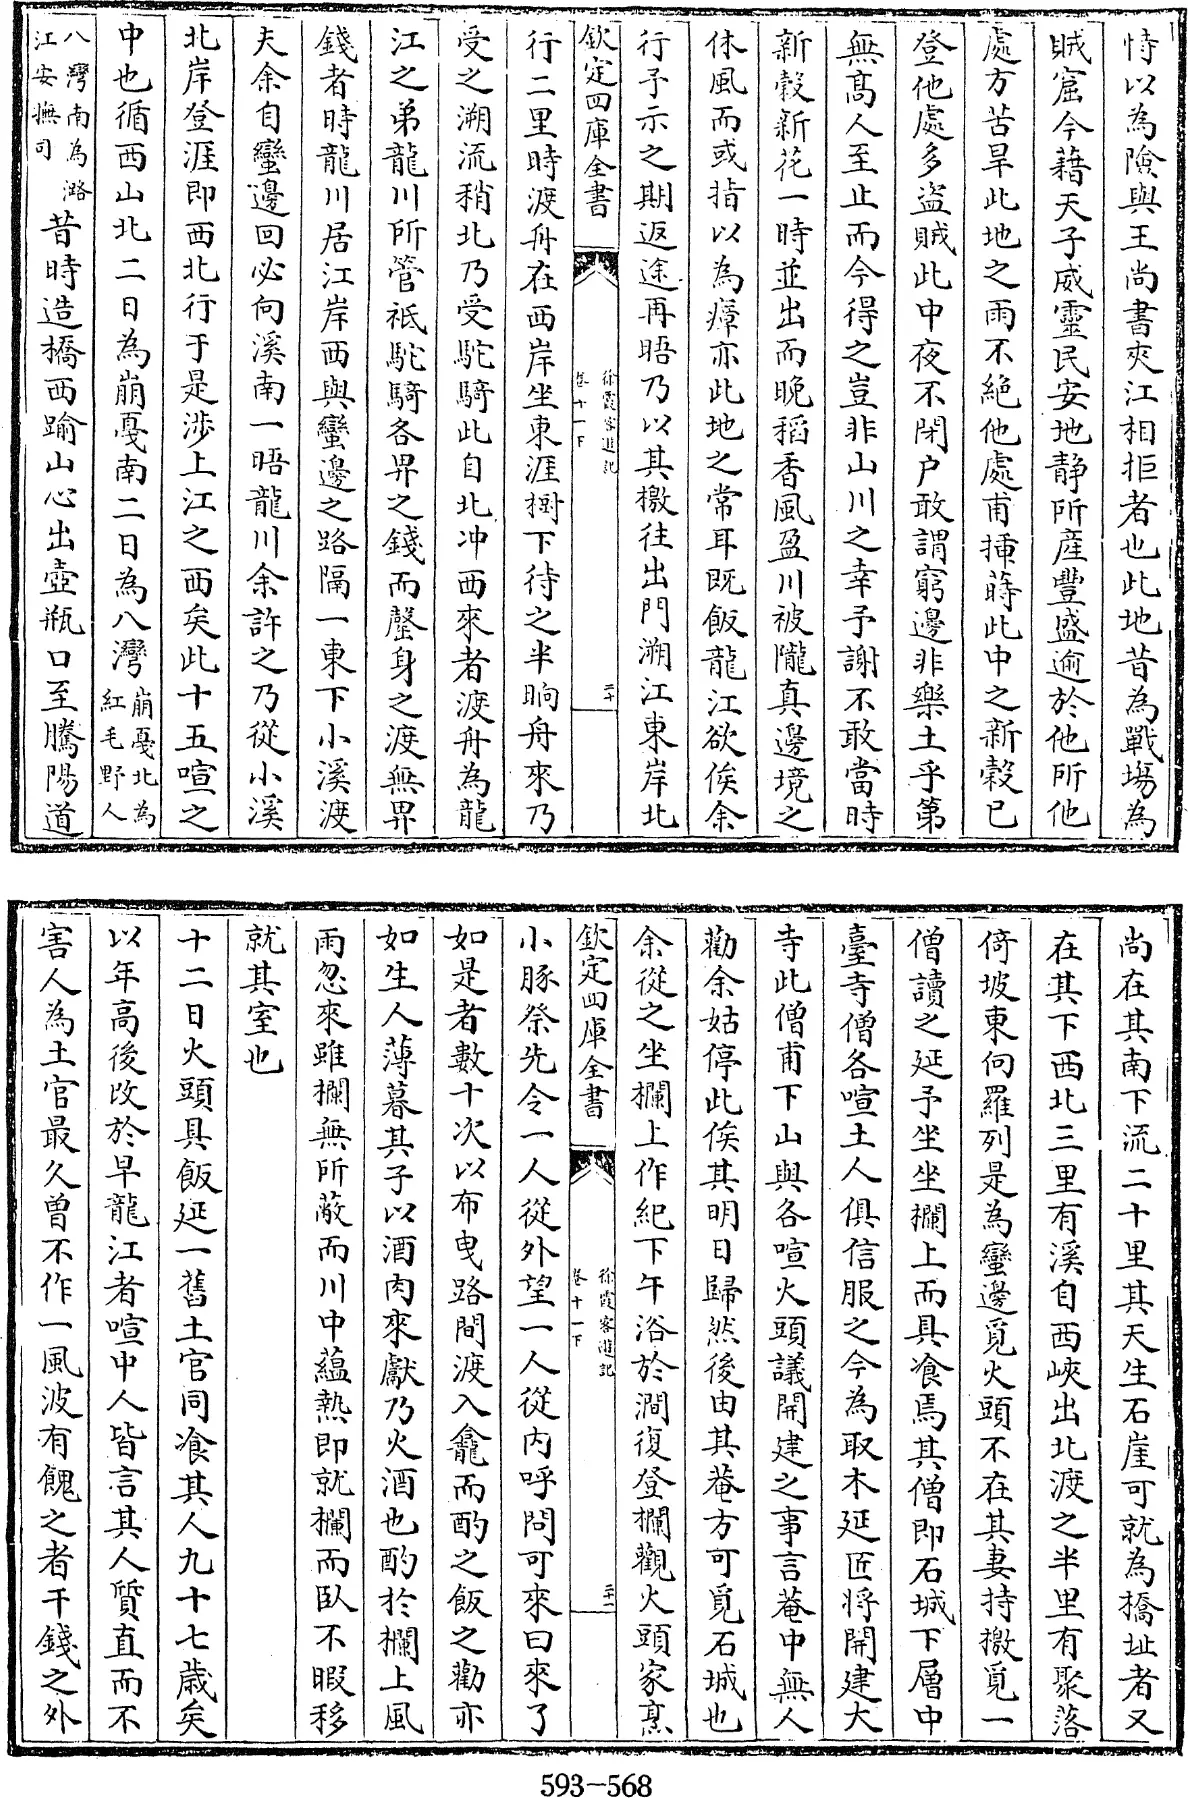 恃以為險與王尚書夾江相拒者也此地昔為戰場為
賊窟今藉天子威靈民安地靜所產豐盛逾於他所他
處方苦旱此地之雨不絕他處甫揷蒔此中之新穀已
登他處多盜賊此中夜不閉户敢謂窮邊非樂土乎第
無髙人至止而今得之豈非山川之幸予謝不敢當時
新穀新花一時並出而晚稻香風盈川被隴真邊境之
休風而或指以為瘴亦此地之常耳既飯龍江欲俟余
行予示之期返途再晤乃以其檄往出門溯江東岸北
欽定四庫全書
徐霞客遊記
卷十一下
三十
行二里時渡舟在西岸坐東涯樹下待之半晌舟來乃
受之溯流稍北乃受駝騎此自北冲西來者渡舟為龍
江之弟龍川所管祗駝騎各畀之錢而罄身之渡無畀
錢者時龍川居江岸西與蠻邊之路隔一東下小溪渡
夫余自蠻邊回必向溪南一晤龍川余許之乃從小溪
北岸登涯即西北行于是涉上江之西矣此十五喧之
中也循西山北二日為崩戞南二日為八灣崩戞北為紅毛野人
八灣南為潞江安撫司昔時造橋西踰山心出壺瓶口至騰陽道
尚在其南下流二十里其天生石崖可就為橋址者又
在其下西北三里有溪自西峽出北渡之半里有聚落
倚坡東向羅列是為蠻邊覓火頭不在其妻持檄覓一
僧讀之延予坐坐欄上而具飡焉其僧即石城下層中
臺寺僧各喧土人俱信服之今為取木延匠將開建大
寺此僧甫下山與各喧火頭議開建之事言菴中無人
勸余姑停此俟其明日歸然後由其菴方可覓石城也
余從之坐欄上作紀下午浴於澗復登欄觀火頭家烹
欽定四庫全書
徐霞客遊記
卷十一下
三十一
小豚祭先令一人從外望一人從内呼問可來曰來了
如是者數十次以布曳路間渡入龕而酌之飯之勸亦
如生人薄暮其子以酒肉來獻乃火酒也酌於欄上風
雨忽來雖欄無所蔽而川中藴熱即就欄而臥不暇移
就其室也
十二日火頭具飯延一舊土官同飡其人九十七歲矣
以年高後改於早龍江者喧中人皆言其人質直而不
害人為土官最久曾不作一風波有餽之者千錢之外
593-568